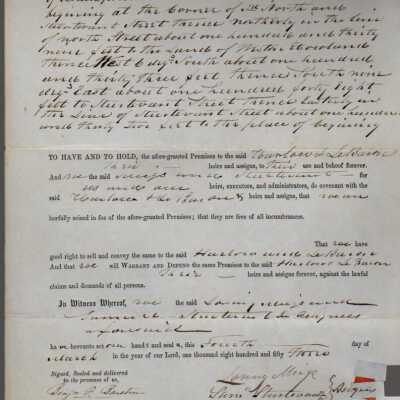 beginning at the Corner of said North and
Sturtevant Street thence northerly in the line
of North Street about one hundred and thirty
feet to the Land of Howland
thence West 6 degs. South about one hundred
and thirty three feet thence South nine
degs. East about one hundred forty eight
feet to Sturtevant Street thence Easterly in
the Line of Sturtevant Street about one hundred
and thirty two feet to the place of beginning
TO HAVE AND TO HOLD, the afore-granted Premises to the said Harlow & LeBaron
their heirs and assigns, to their use and behoof forever.
And we the said and Sturtevant for
us and our heirs, executors, and administrators, do covenant with the
said Harlow & LeBaron heirs and assigns, that we are
lawfully seized in fee of the afore-granted Premises; that they are free of all incumbrances.
That we have
good right to sell and convey the same to the said Harlow and LeBaron
And that we will WARRANT AND DEFEND the same Premises to the said Harlow & LeBaron
their heirs and assigns forever, against the lawful
claims and demands of all persons.
In Witness Whereof, we the said and
Sturtevant Assignees
as aforesaid
have hereunto set our hand and seals, this Fourth day of
March in the year of our Lord, one thousand eight hundred and fifty three
Signed, Sealed and delivered
in the presence of us,
Sturtevant Assignees